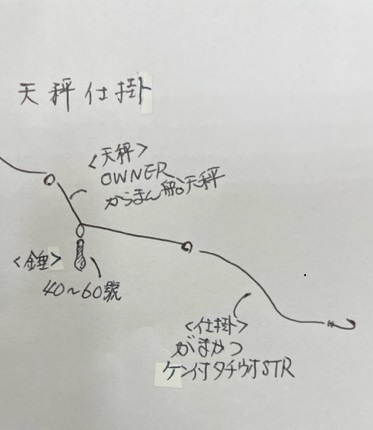 天秤仕掛
<天秤>
OWNER
からまん船天秤
<錘>
40~60號
<仕掛>
がまかつ
ケン付タチウオSTR